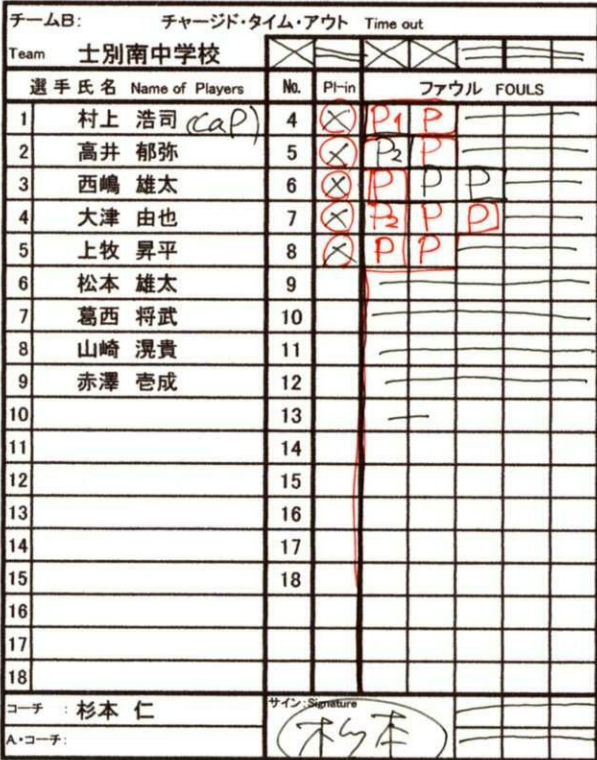 チームB: チャージド・タイム・アウト Time out
Team 士別南中学校
選手氏名 Name of Players No. Pl-in ファウル FOULS
1 村上 浩司 (CaP) 4 X P1 P
2 高井 郁弥 5 X P2 P
3 西嶋 雄太 6 X P P P
4 大津 由也 7 X P2 P P
5 上牧 昇平 8 X P P
6 松本 雄太 9
7 葛西 将武 10
8 山崎 滉貴 11
9 赤澤 壱成 12
10 13
11 14
12 15
13 16
14 17
15 18
16
17
18
コーチ : 杉本 仁 サイン:Signature
杉本
A・コーチ: